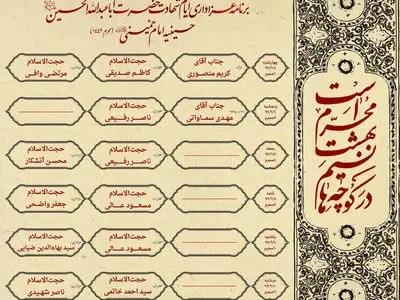 برنامه عزاداری ایام شهادت حضرت اباعبدالله الحسین
حسینیه امام خمینی (محرم ۱۴۴۲)
محرم است
نسیم بهشت
در کوچه ما
چهارشنبه
جناب آقای
کریم منصوری
حجت‌الاسلام
کاظم صدیقی
حجت‌الاسلام
مرتضی وافی
پنجشنبه
جناب آقای
مهدی سماواتی
حجت‌الاسلام
ناصر رفیعی
حجت‌الاسلام
ناصر رفیعی
جمعه
حجت‌الاسلام
ناصر رفیعی
حجت‌الاسلام
محسن آتشکار
شنبه
حجت‌الاسلام
مسعود عالی
حجت‌الاسلام
جعفر واضحی
یکشنبه
حجت‌الاسلام
مسعود عالی
حجت‌الاسلام
سید بهاءالدین ضیایی
دوشنبه
حجت‌الاسلام
سید احمد خاتمی
حجت‌الاسلام
ناصر شهیدی